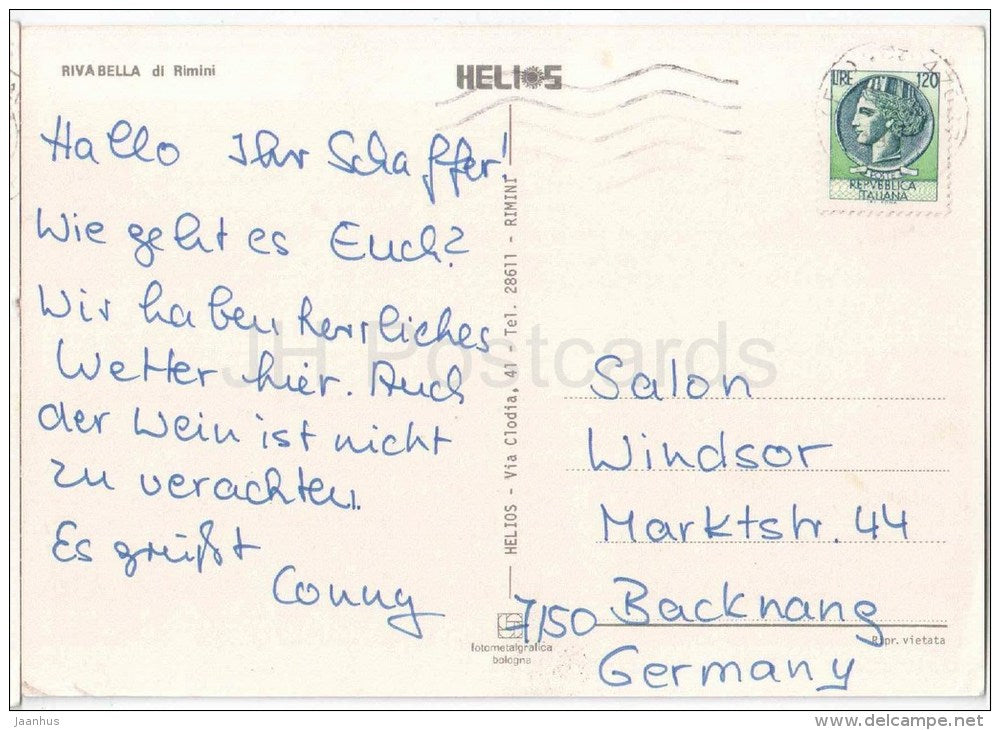 RIVABELLA di Rimini
HELIOS
LIRE 120
POSTE
REPVBBLICA
ITALIANA
Hallo Ihr Schaffer!
Wie geht es Euch?
Wir haben herrliches
Wetter hier. Auch
der Wein ist nicht
zu verachten.
Es grüßt
Conny
HELIOS - Via Clodia, 41 - Tel. 28611 - RIMINI
Salon
Windsor
Marktstr. 44
7150 Backnang
Germany
fotometalgrafica
bologna
Ripr. vietata
JH Postcards
Jaanhus
www.delcampe.net